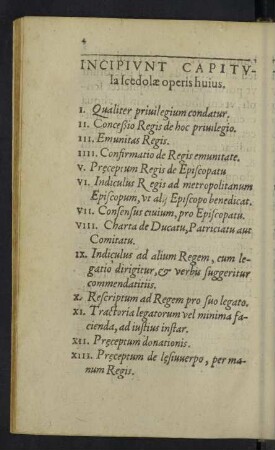 4
INCIPIVNT CAPITV-
la scedolæ operis huius.
I. Qualiter priuilegium condatur.
II. Concessio Regis de hoc priuilegio.
III. Emunitas Regis.
IIII. Confirmatio de Regis emunitate.
V. Pręceptum Regis de Episcopatu
VI. Indiculus Regis ad metropolitanum
Episcopum, vt alij Episcopo benedicat.
VII. Consensus ciuium, pro Episcopatu.
VIII. Charta de Ducatu, Patriciatu aut
Comitatu.
IX. Indiculus ad alium Regem, cum le-
gatio dirigitur, & verbis suggeritur
commendatitiis.
X. Rescriptum ad Regem pro suo legato.
XI. Tractoria legatorum vel minima fa-
cienda, ad iustius instar.
XII. Pręceptum donationis.
XIII. Pręceptum de lesiuuerpo, per ma-
num Regis.